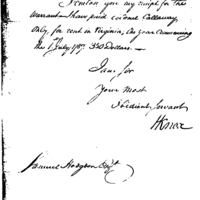 I enclose you my receipt for the
warrant I have paid colonel Callaway
only, for rent in Virginia, One year commencing
the 1 July 1797 350 Dollars.
I am, Sir
Your most
Obedient Servant
H Knox
Samuel Hodgdon Esqr